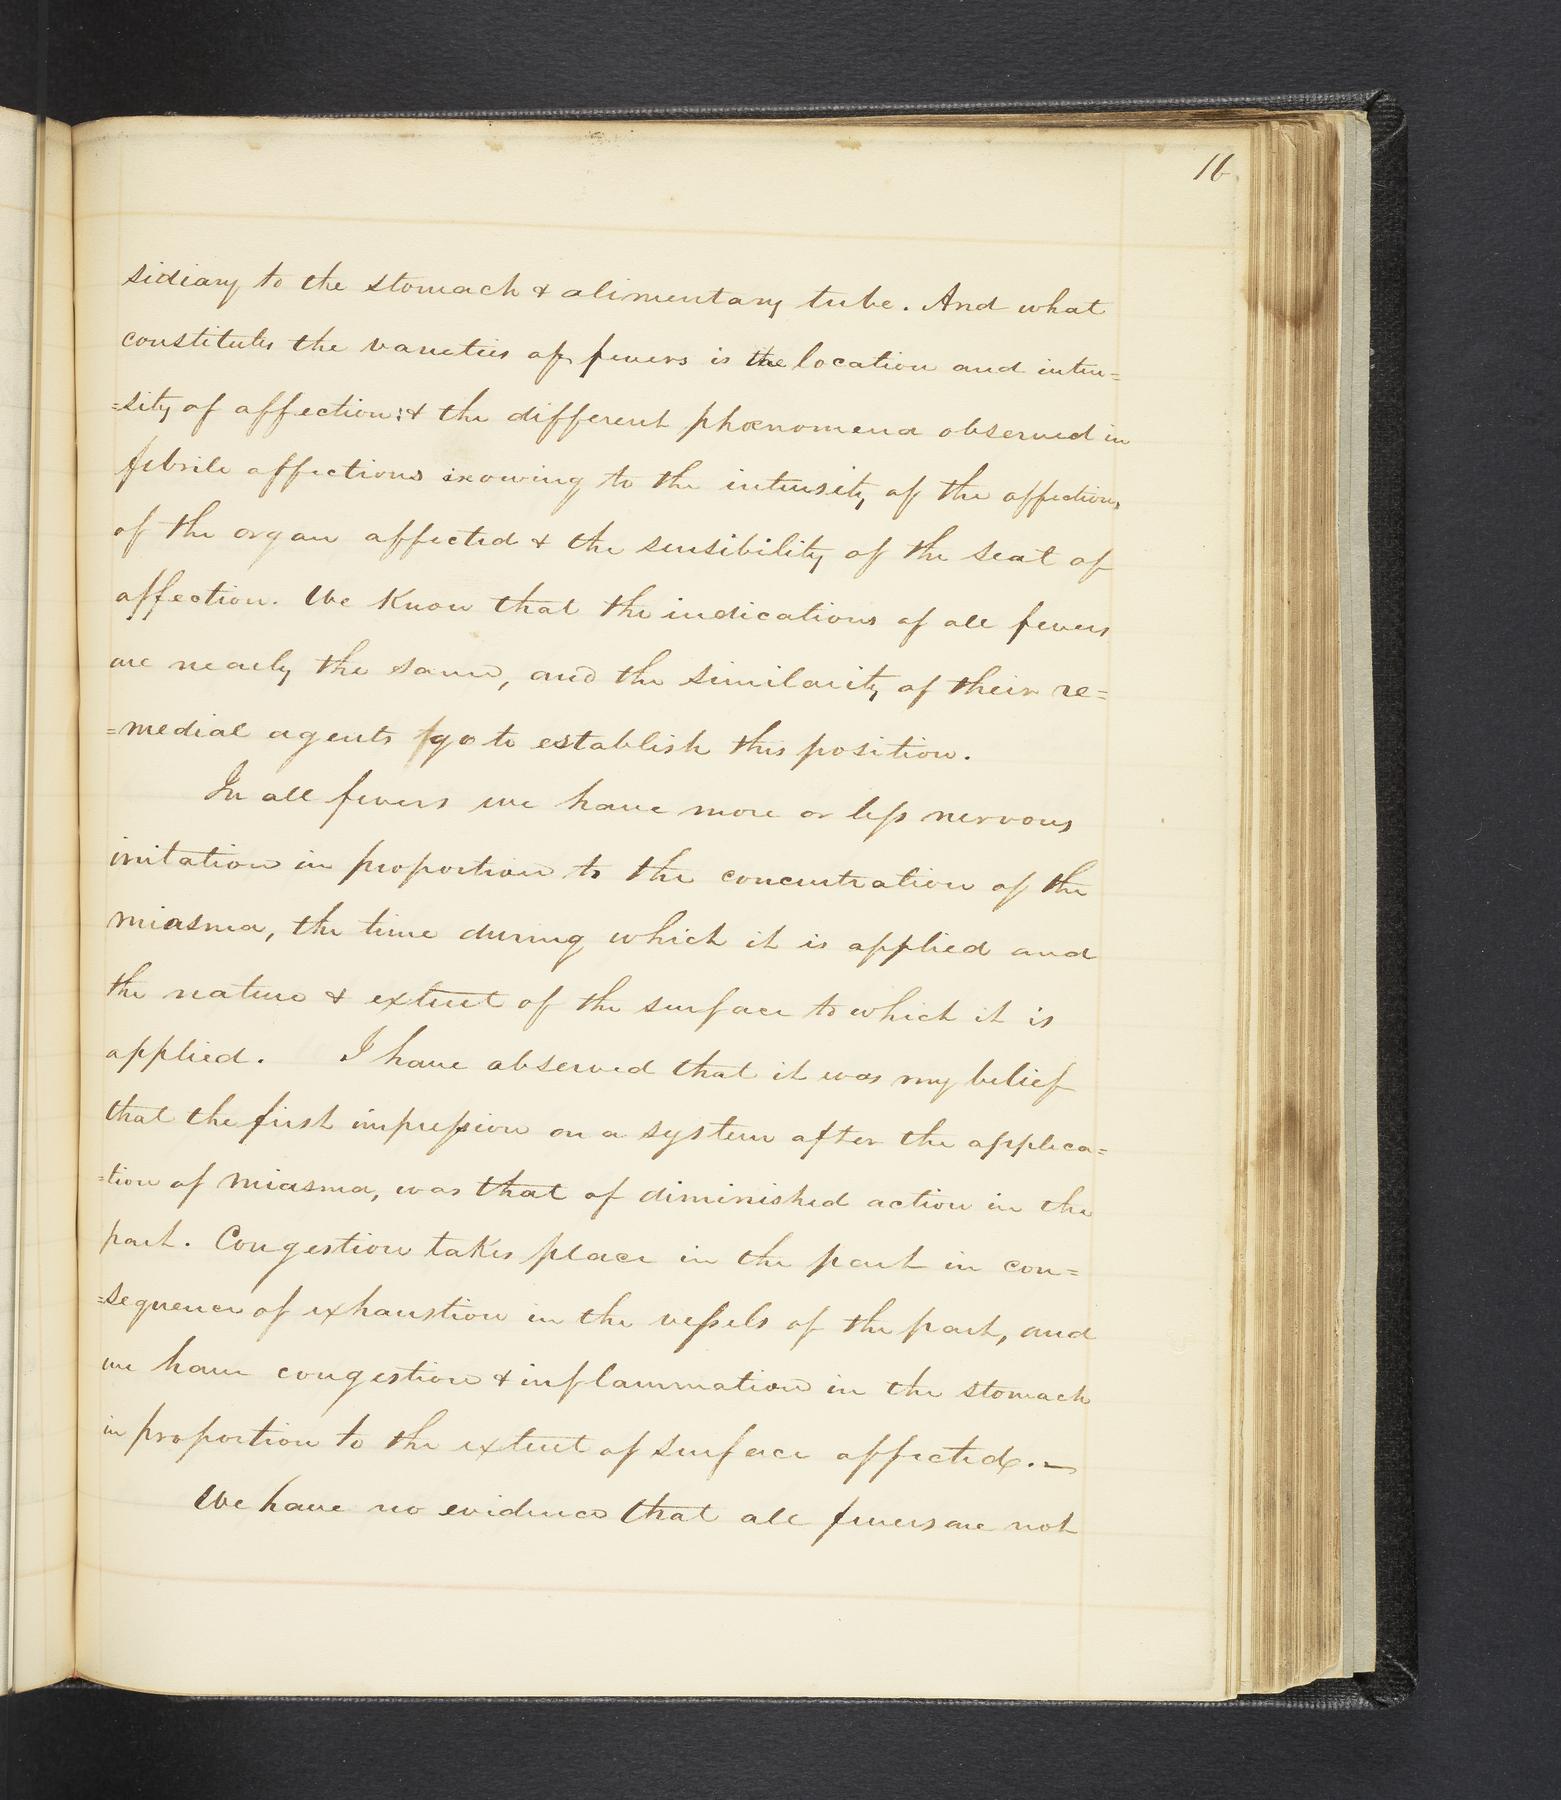 16
sidiary to the stomach & alimentary tube. And what
constitutes the varieties of fevers is the location and inten=
=sity of affection: & the different phœnomena observed in
febrile affections is owing to the intensity of the affection,
of the organ affected & the sensibility of the seat of
affection. We Know that the indications of all fevers
are nearly the same, and the similarity of their re=
=medial agents go to establish this position.
In all fevers we have more or less nervous
irritation in proportion to the concentration of the
miasma, the time during which it is applied and
the nature & extent of the surface to which it is
applied. I have observed that it was my belief
that the first impression on a system after the applica=
=tion of miasma, was that of diminished action in the
part. Congestion takes place in the part in con=
=sequence of exhaustion in the vessels of the part, and
we have congestion & inflammation in the stomach
in proportion to the extent of surface affected. —
We have no evidence that all fevers are not